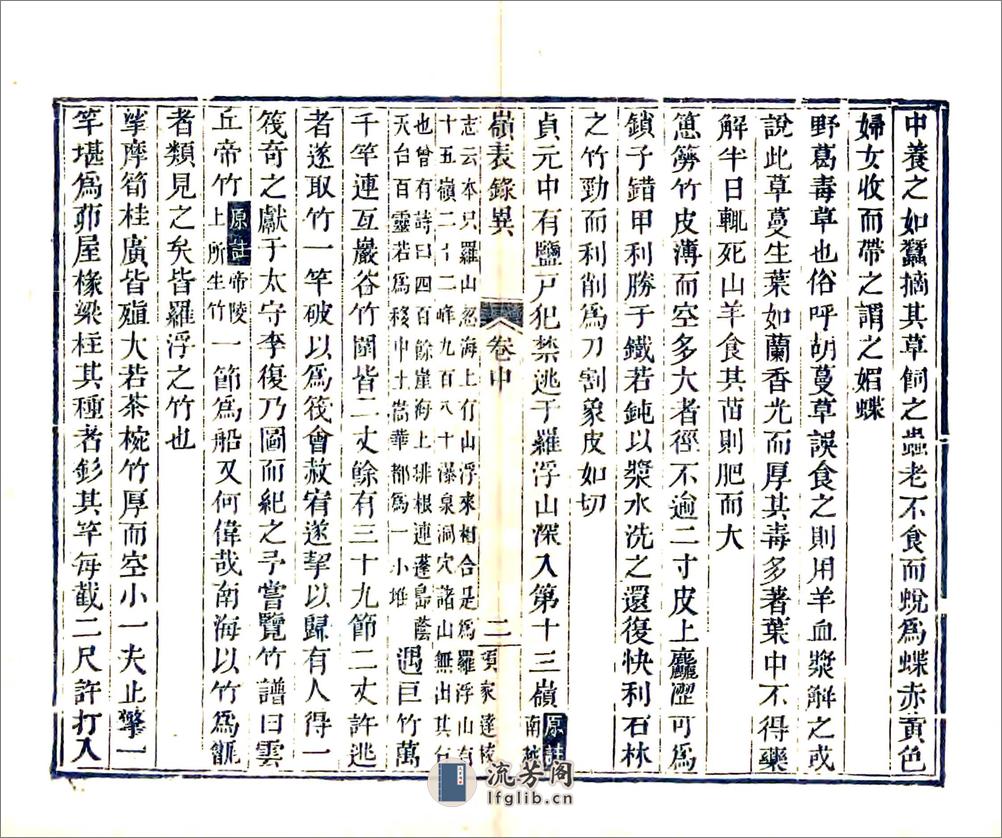 中養之如蠶摘其草飼之蟲老不食而蛻爲蝶赤黃色
婦女收而帶之謂之媚蝶
野葛毒草也俗呼胡蔓草誤食之則用羊血漿解之或
說此草蔓生葉如蘭香光而厚其毒多著葉中不得藥
解半日輒死山羊食其苗則肥而大
簩竹皮薄而空多大者徑不逾二寸皮上麤澀可爲
鎖子錯甲利勝于鐵若鈍以漿水洗之還復快利石林
之竹勁而利削爲刀割象皮如切
貞元中有鹽戸犯禁逃于羅浮山深入第十三嶺原註南越
嶺表錄異 卷中 二 項家達校
志云本只羅山忽海上有山浮來相合是爲羅浮山有
十五嶺二十二峰九百八十瀑泉洞穴諸山無出其右
也曾有詩曰四百餘崖海上排根連蓬島蔭
天台百靈若爲移中土嵩華都爲一小堆遇巨竹萬
千竿連亙巖谷竹圍皆二丈餘有三十九節二丈許逃
者遂取竹一竿破以爲筏會赦宥遂挈以歸有人得一
筏奇之獻于太守李復乃圖而紀之予嘗覽竹譜曰雲
丘帝竹原註帝陵上所生竹一節爲船又何偉哉南海以竹爲甑
者類見之矣皆羅浮之竹也
挲摩筍桂廣皆殖大若茶椀竹厚而空小一夫止擎一
竿堪爲茆屋椽梁柱其種者釤其竿每截二尺許打入
流芳阁
lfglib.cn